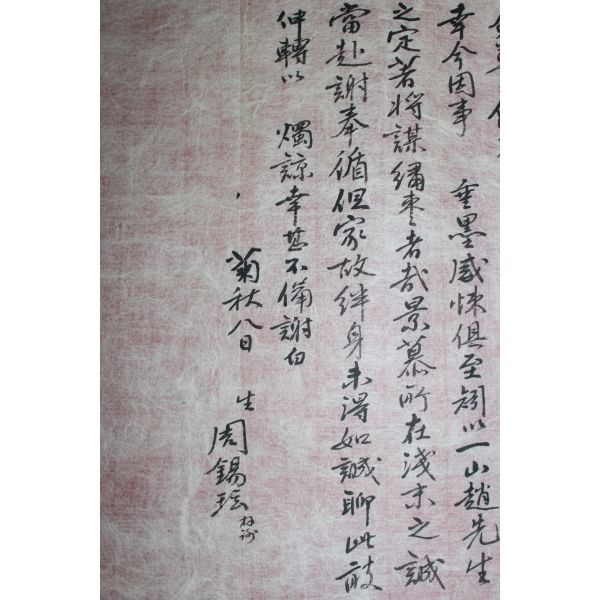 幸今因事 垂墨感悚俱至矧以一山趙先生
之定著將謀繡棗者哉景慕所在淺末之誠
當赴謝奉循但家故絆身未得如誠聊此敢
仲轉以 燭諒幸甚不備謝白
菊秋八日
生 周錫